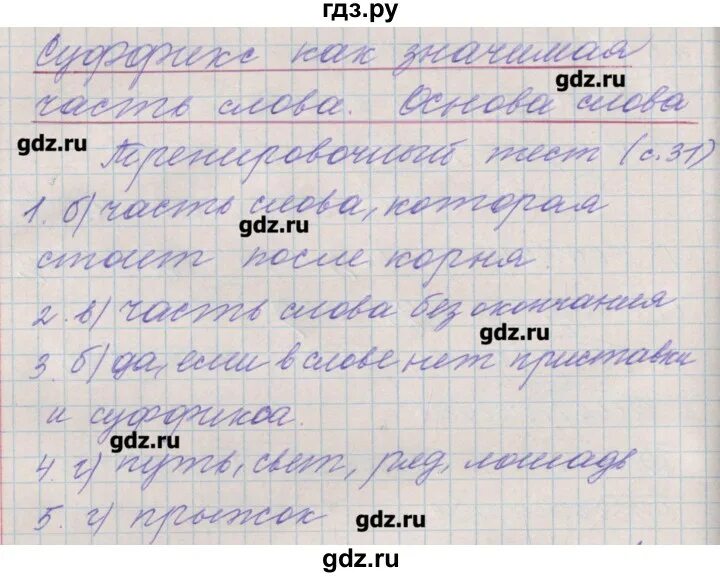 гдз.ру
Суффикс как значимая
gdz.ru
часть слова. Основа слова
gdz.ru
Тренировочный тест (с.31)
1. б) часть слова, которая
gdz.ru
стоит после корня.
2. в) часть слова без окончания
gdz.ru
3. б) да, если в слове нет приставки
и суффикса.
gdz.ru
4. г) путь, свет, ряд, лошадь
5. г) прыжок
gdz.ru
gdz.ru